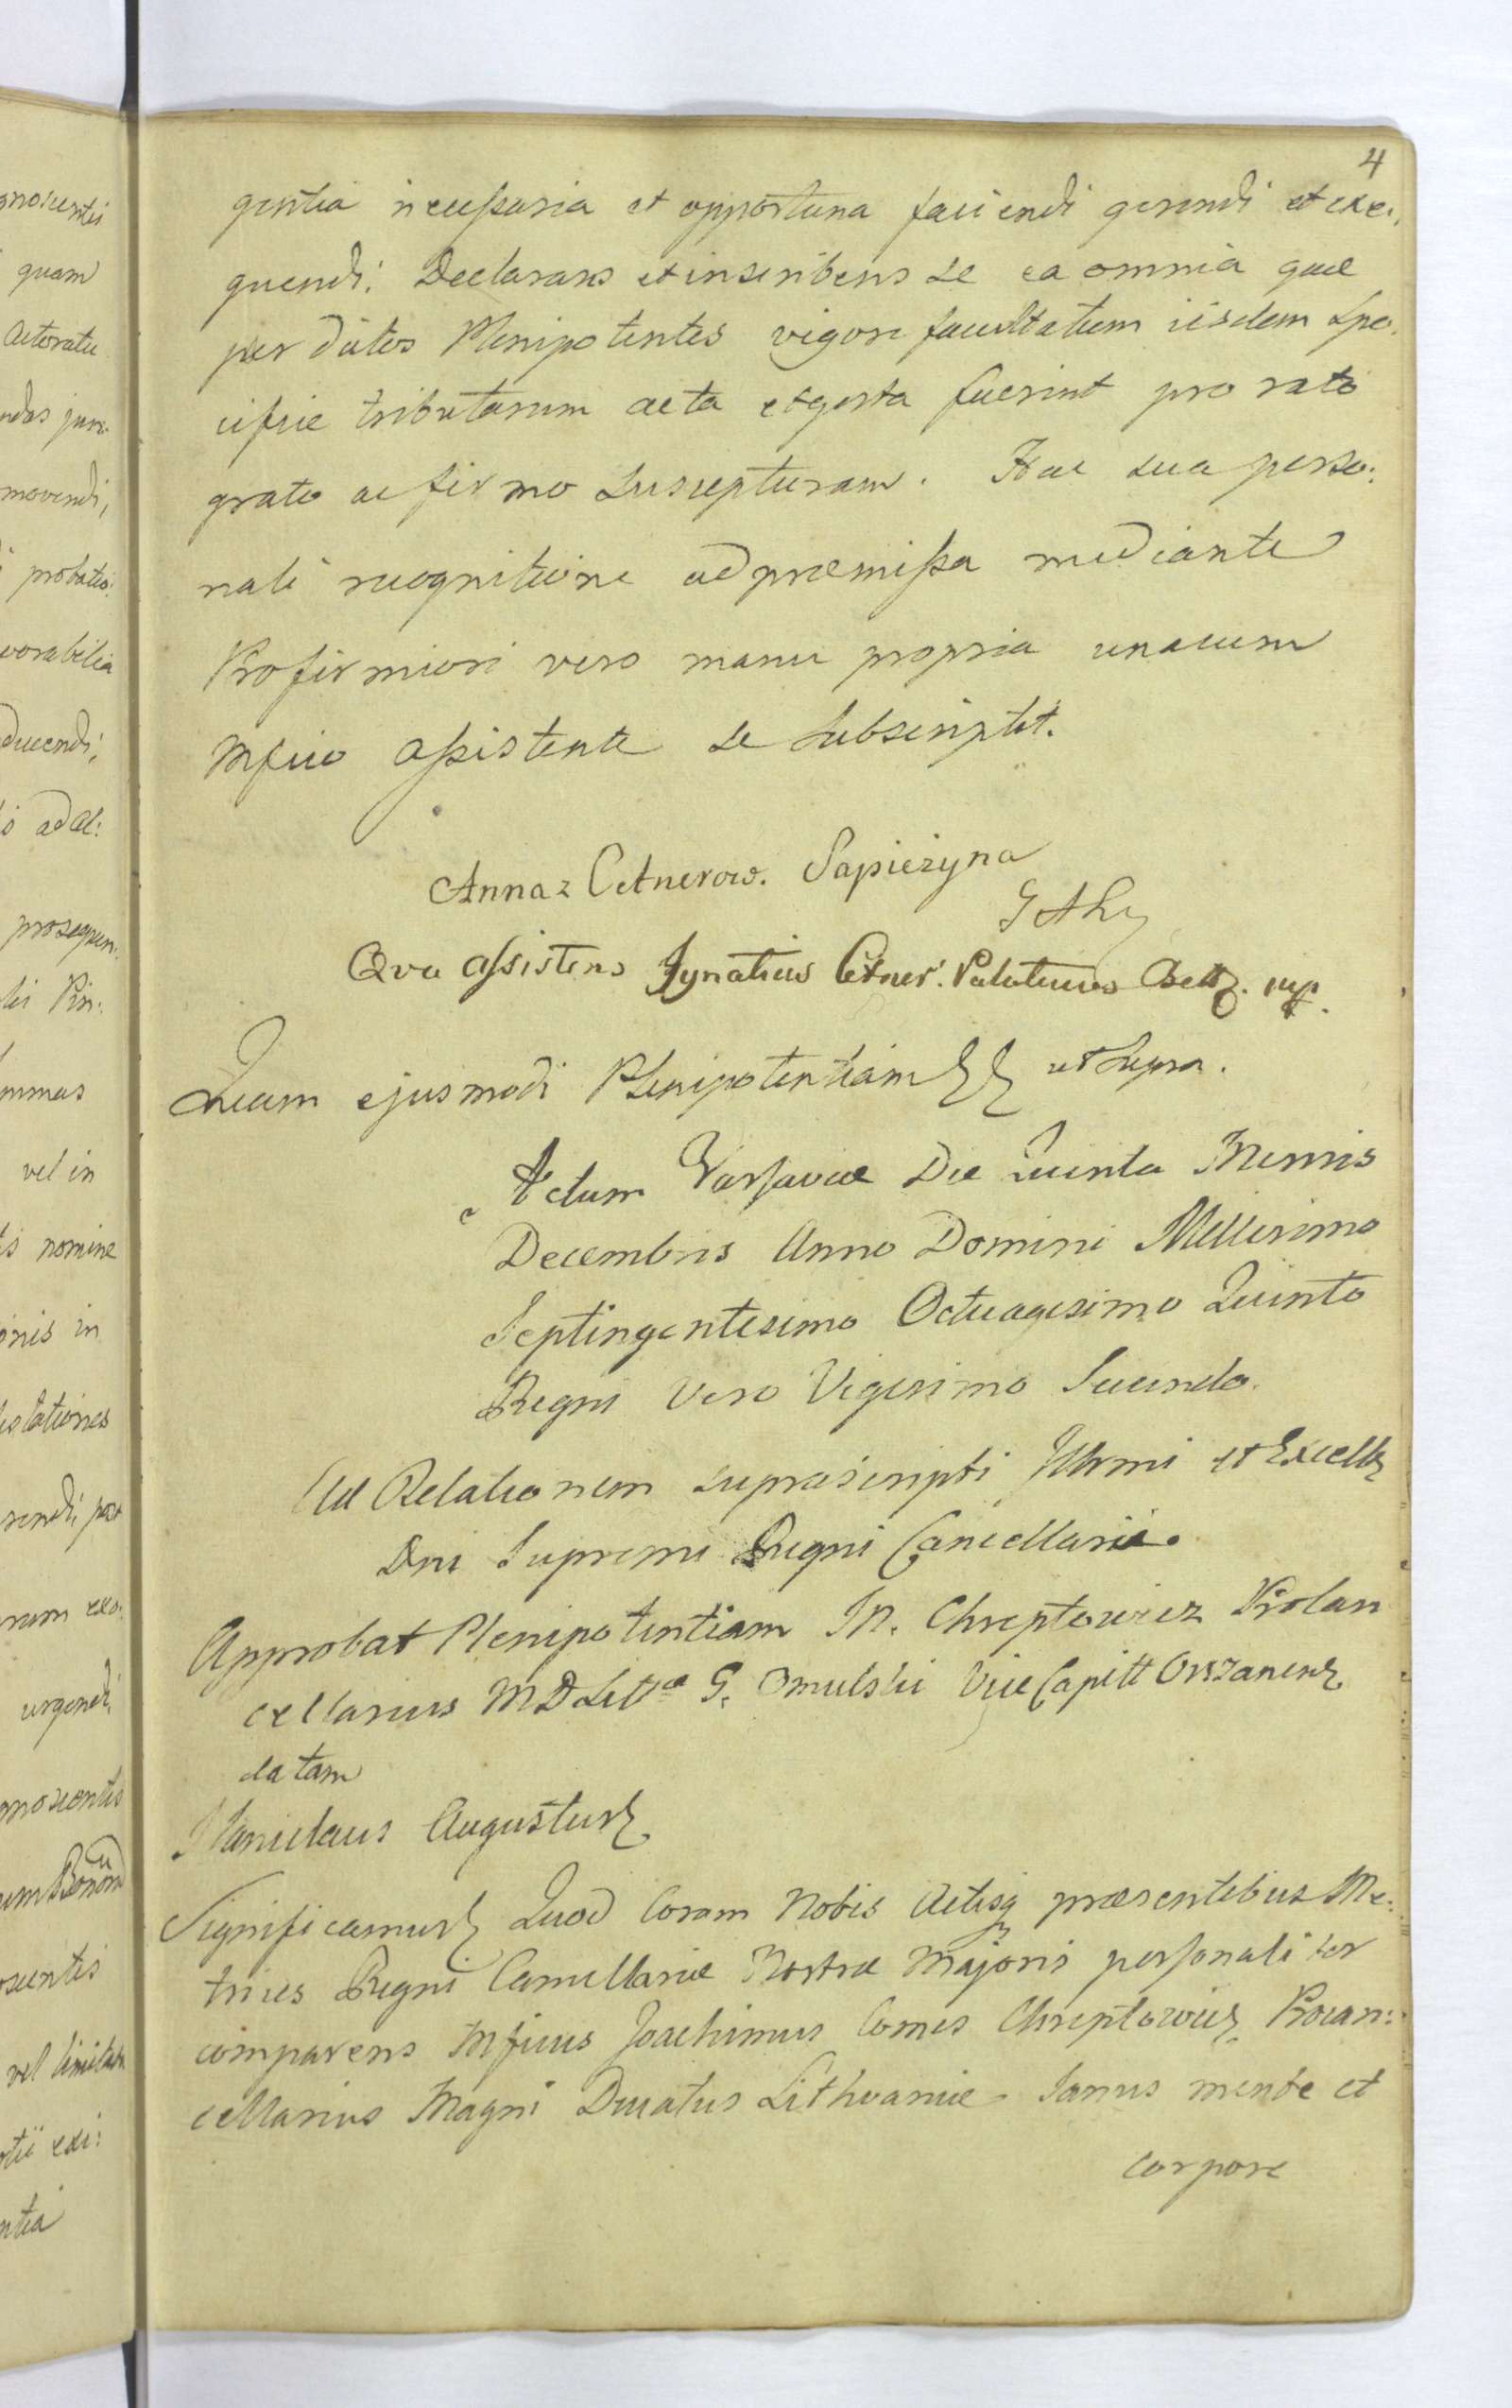 4
gentia necessaria et opportuna faciendi gerendi et exe:
quendi: Declarans et inscribens se ea omnia quae
per dictos Plenipotentes vigore facultatum iisdem spe:
cifice tributarum acta et gesta fuerint pro rato
grato ac firmo suscepturam. Hac sua perso:
nali recognitione ad praemissa mediante
Pro firmiori vero manu propria unacum
Mfico assistente se subscripsit.
Anna z Cetnerow. Sapieżyna
Qva assistens Ignatius Cetner. Palatinus Belz. mp.
Quam ejusmodi Plenipotentiam ut supra.
Actum Varsaviae Die Quinta Mensis
Decembris Anno Domini Millesimo
Septingentesimo Octuagesimo Quinto
Regni Vero Vigesimo Secundo.
Ad Relationem suprascripti Illmi et Excell
Dni Supremi Regni Cancellarii.
Approbat Plenipotentiam M. Chreptowicz Prolan
cellarius MDLitt G. Omulski Vice Capitt Orszanens
datam
Stanislaus Augustus
Significamus Quod Coram Nobis Actisq praesentibus Me:
trices Regni Cancellariae Nostrae Majoris personaliter
comparens Mficus Joachimus Comes Chreptowicz Procan:
cellarius Magni Ducatus Lithvaniae Sanus mente et
corpore